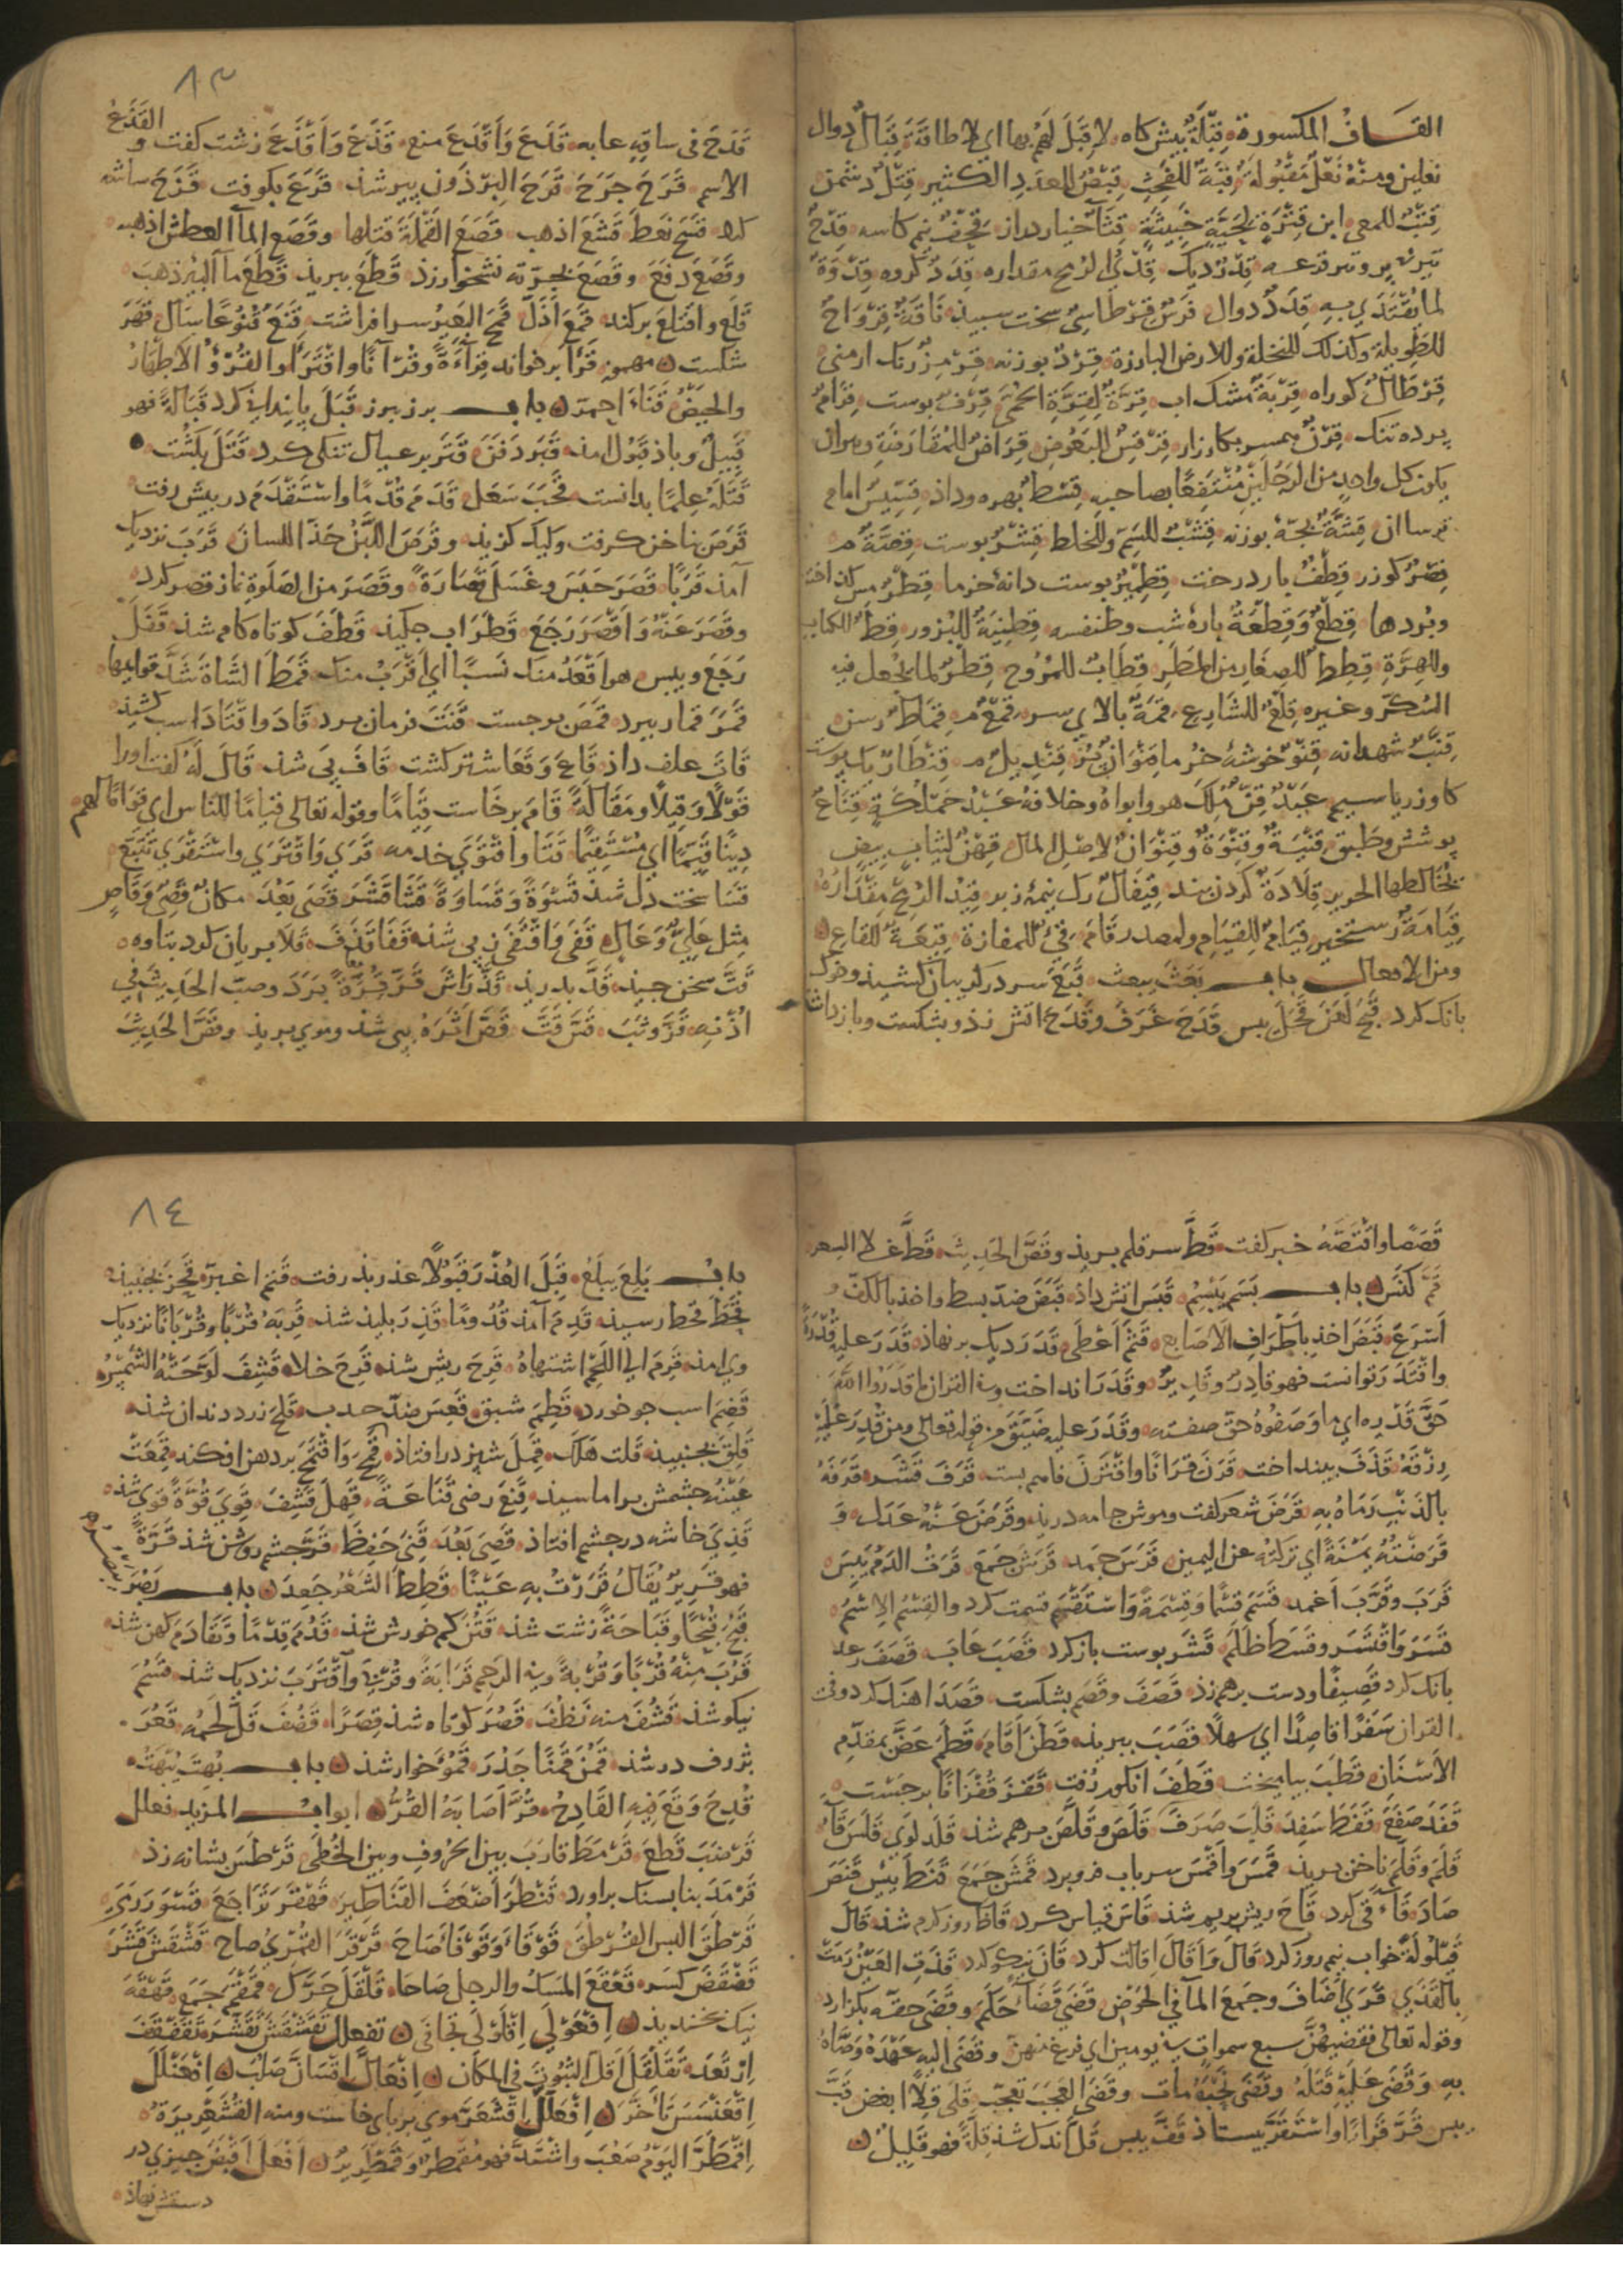 القاف المكسورة قبلة پیش کاه لا قبل لهم بها ای لا طاقة قبال دوال
نعلین ومنه نعل مقبولة قبة للفحث قبص للعدد الکثیر قتل دشمن
قتب للمعی ابن قترة لحیة خبیثة قثاء خیار دراز قحف نیم کاسه قدح
تیر قدر دیک قدی الرمح مقداره قدد کروه قدوة
لما یقتدی به قدد دوال فرس قرطاسی سخت سپید ناقة قرواح
للطویلة وکذلک للنخلة وللارض البارزة قرد بوزنه قرمز رنک ارمنی
قرطال کواره قربة مشک اب قرة لقرة الحمی قرف پوست قرام
پرده تنک قرن همسر بکارزار قرقس البعوض قراض للمقارضة وهو ان
یکون کل واحد من الرجلین منتفعا بصاحبه قسط بهره وداد قسیس امام
ترساان قشة بجه بوزنه قشب للسم وللخلط قشر پوست قصة م
قصر کوزر قطف بار درخت قطمیر پوست دانه خرما قطر مس کداخته
وبردها قطع وقطعة پاره شب وطنفسه قطنیة للبزور قط الکتاب
وللهرة قطقط للصغار من المطر قطاب للمزوج قطر لما یجعل فیه
السکر وغیره قلع للشارع قمة بالای سر قمع م قماط رسن
قنب شهدانه قنو خوشه خرما قنوان بن قندیل م قنطار یک پوست
کاو زر یا سیم عبد قن ملک هو وابواه وخلافه عبد مملکة قناع
پوشش وطبق قنیة وقنوة وقنوان لاصل المال قهز لثیاب بیض
یخالطها الحریر قلادة کردن بند قیفال رک نیمه زبر قید الرمح مقداره
قیامة رستخیز قیام للقیام ولمصدر قام قی للمفازة قیعة للقاع
ومن الافعال باب بعث یبعث قبع سر درکریبان کشید وخوک
بانک کرد قبح لعن قحل یبس قدح غرف وقدح اتش زد وبشکست وبازداشت
٨٣
قدح فی ساقه عابه قدع واقدع منع قذع واقذع زشت کفت و القذع
الاسم قرح جرح قرح البرذون پیر شد قرع بکوفت قزح شاشه
کرد قسح نعظ قشع اذهب قصع القملة قتلها وقصع الماء العطش اذهبه
وقصع دفع وقصع بجرته نشخوار زد قطع ببرید قطع ماء البئر ذهب
قلع واقتلع برکند قمع اذل قمح البعیر سر افراشت قنع قنوعا سال قهر
شکست مهموز قرا برخواند قراءة وقرآنا واقترا والقرؤ الاطهار
والحیض قنا احمر باب برز یبرز قبل پایندانی کرد قبالة فهو
قبیل وباد قبول امد قبر دفن قتر بر عیال تنکی کرد قتل بکشت
قتله علما بدانست قحب سعل قدم قدما واستقدم در پیش رفت
قرص بناخن کرفت وکیک کزید وقرص اللبن حذا اللسان قرب نزدیک
آمد قربا قصر حبس وغسل قصارة وقصر من الصلوة نماز قصر کرد
وقصر عنه واقصر رجع قطر اب چکید قطف کوتاه کام شد قفل
رجع ویبس هو اقعد منک نسبا ای اقرب منک قمط الشاة شد قوایمها
قمر قمار ببرد قمص برجست قنت فرمان برد قاد واقتاد اسب کشید
قات علف داد قاع وقعا اشتر کشت قاف پی شد قال له کفت اورا
قولا وقیلا ومقالة قام برخاست قیاما وقوله تعالی قیاما للناس ای قواما لهم
دینا قیما ای مستقیما قتا واقتوی خدمه قری واقتری واستقری تتبع
قسا سخت دل شد قسوة وقساوة قشا قشر قصی بعد مکان قصی وقاص
مثل علی وعال قفی واقتفی ز پی شد قفا قذف قلا بریان کرد بتاوه
قت سخن چید قد بدرید قذ راش قر قرة برد وصب الحدیث فی
اذنه قز وثب قس قت قص اثره پی شد وموی برید وقص الحدیث
قصصا واقتصه خبر کفت قط سر قلم برید وقص الحدیث قط غلا السعر
قم کنس باب بسم یبسم قبس اتش داد قبض ضد بسط واخذ بالکف و
اسرع قبص اخذ باطراف الاصابع قثم اعطی قدر دیک بر نهاد قدر علیه قدرة
واقتدر توانست فهو قادر وقدیر وقدر انداخت وفی القران ما قدروا الله
حق قدره ای ما وصفوه حق صفته وقدر علیه ضیق م قوله تعالی ومن قدر علیه
رزقه قذف بینداخت قرن قرانا واقترن فاهم بست قرف قشر قرفه
بالذنب رماه به قرض شعر کفت وموش جامه درید وقرض عنه عدل و
قرضته یمنة ای ترکته عن الیمین قرس جمد قرش جمع قرت الدم یبس
قرب وقرب اغمد قسم قسما وقسمة واستقسم قسمت کرد والقسم الاسم
قسر واقتسر وقسط ظلم قشر پوست باز کرد قصب عابه قصف رعد
بانک کرد قصیفا ودست برهم زد قصف وقصم بشکست قصد اهنک کرد وفی
القران سفرا قاصدا ای سهلا قضب ببرید قطن اقام قطم عض بمقدم
الاسنان قطب بیامیخت قطف انکور رفت قفز قفزانا برجست
قفد صفع قفط سفد قلب صرف قلص وقلص برهم شد قلد لوی قلس قاء
قلم وقلم ناخن برید قمس واقمس سر باب فرو برد قمش جمع قنط یئس قنص
صاد قاء قی کرد قاح ریش بریم شد قاس قیاس کرد قاظ روز کرم شد قال
قیلولة خواب نیم روز کرد قال واقال اقالت کرد قان نیکو کرد قذت العین رمت
بالقذی قری اضاف وجمع الماء فی الحوض قضی قضاء حکم وقضی حقه بکزارد
وقوله تعالی فقضیهن سبع سموات فی یومین ای فرغ منهن وقضی الیه عهده وصاه
به وقضی علیه قتله وقضی نحبه مات وقضی العجب تعجب قلی قلا ابغض قب
یبس قر قرارا واستقر بیستاد قف یبس قل اندک شد قلة فهو قلیل
٨٤
باب بلع یبلع قبل العذر قبولا عذر بذرفت قتم اغبر قحز بجنبید
قحط قحط رسید قدم آمد قدوما قذر پلید شد قربه قربا وقربانا نزدیک
وی امد قرم الی اللحم اشتهاه قرح ریش شد قرع خلا قشف لوحته الشمس
قضم اسب جو خورد قطم شبق قعس ضد حدب قلح زرد دندان شد
قلق بجنبید قلت هلک قمل شپش درافتاد قمح واقتمح بر دهن افکند قمعت
عینه چشمش براماسید قنع رضی قناعة قهل قشف قوی قوة قوی شد
قذی خاشه در چشم افتاد قصی بعد قنی حفظ قر چشم روشن شد قرة
فهو قریر یقال قررت به عینا قطط الشعر جعد باب بصر یبصر
قبح قبحا وقباحة زشت شد قتن کم خورش شد قدم قدما وتقادم کهن شد
قرب منه قربا وقربة وفی الرحم قرابة وقربی واقترب نزدیک شد قسم
نیکو شد قشف منه نظف قصر کوتاه شد قصرا قضف قل لحمه قعر
بژرف در شد قمن قمنا جدر قمؤ خوار شد باب بهت یبهت
قدح وقع فیه القادح قر اصابه القر ابواب المزید فعلل
قرضب قطع قرمط قارب بین الحروف وبین الخطی قرطس نشانه زد
قرمد بنا بسنک براورد قنطر اضعف القناطیر قهقر تراجع قسور
قرطق البس القرطق قوقا وقوقا صاح قرقر القمری صاح قشقش قشر
قضقض کسر قعقع المسک والرجل صاحا قلقل حرک قمقم جمع قهقه
نیک بخندید افعولی اقلولی تجافی تفعلل تقشقش تقشر تقضقض
ارتعد تقلقل اقل الثبوت فی المکان افعال اقسان صلب افعنلل
اقعنسس تاخر افعلل اقشعر موی بر پای خاست ومنه القشعریرة
اقمطر الیوم صعب واشتد فهو مقمطر وقمطریر افعل اقبض چیزی در
دستش نهاد